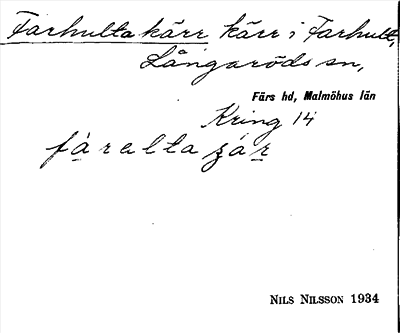 Farhultakärr kärr i Farhult,
Långaröds sn,
Färs hd, Malmöhus län
Kring 14
fáralta
NILS NILSSON 1934